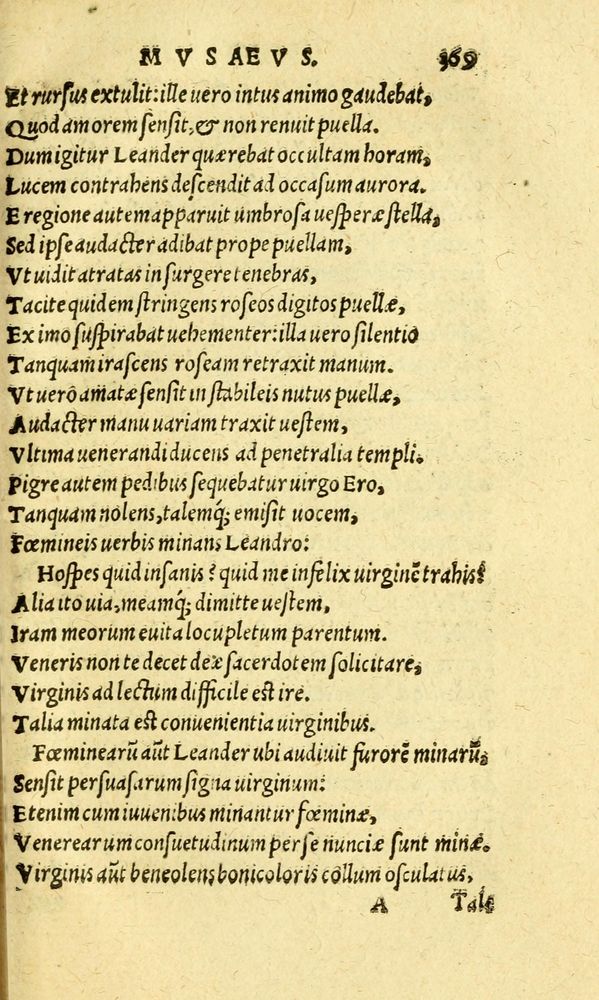 MVSAEVS. 369
Et rursus extulit: ille uero intus animo gaudebat,
Quod amorem sensit, & non renuit puella.
Dum igitur Leander quærebat occultam horam,
Lucem contrahens descendit ad occasum aurora.
E regione autem apparuit umbrosa uesperæ stella,
Sed ipse audacter adibat prope puellam,
Vt uidit atratas insurgere tenebras,
Tacite quidem stringens roseos digitos puellæ,
Ex imo suspirabat uehementer: illa uero silentio
Tanquam irascens roseam retraxit manum.
Vt uerò amatæ sensit instabileis nutus puellæ,
Audacter manu uariam traxit uestem,
Vltima uenerandi ducens ad penetralia templi.
Pigre autem pedibus sequebatur uirgo Ero,
Tanquam nolens, talemq; emisit uocem,
Fœmineis uerbis minans Leandro:
Hospes quid insanis? quid me infelix uirginē trahis?
Alia ito uia, meamq; dimitte uestem,
Iram meorum euita locupletum parentum.
Veneris non te decet deæ sacerdotem solicitare,
Virginis ad lectum difficile est ire.
Talia minata est conuenientia uirginibus.
Fœminearū aūt Leander ubi audiuit furorē minarū,
Sensit persuasarum signa uirginum:
Etenim cum iuuenibus minantur fœminæ,
Venerearum consuetudinum per se nunciæ sunt minæ.
Virginis aūt beneolens bonicoloris collum osculatus,
A Tale